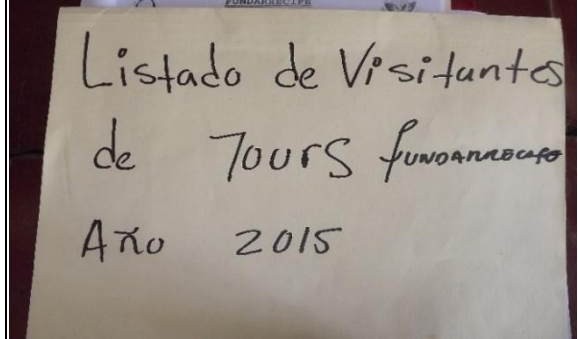 FUNDARRECIFE
Listado de Visitantes
de Tours FUNDARRECIFE
Año 2015